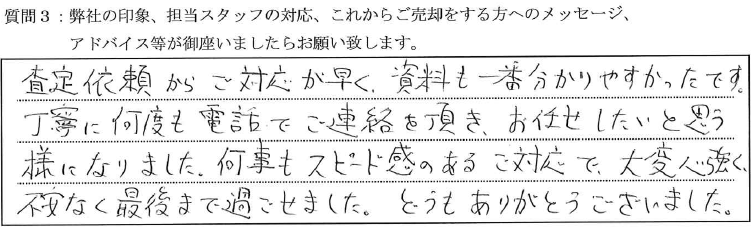 質問3:弊社の印象、担当スタッフの対応、これからご売却をする方へのメッセージ、
アドバイス等が御座いましたらお願い致します。
査定依頼からご対応が早く、資料も一番分かりやすかったです。
丁寧に何度も電話でご連絡を頂き、お任せしたいと思う
様になりました。何事もスピード感のあるご対応で、大変心強く、
不安なく最後まで過ごせました。どうもありがとうございました。